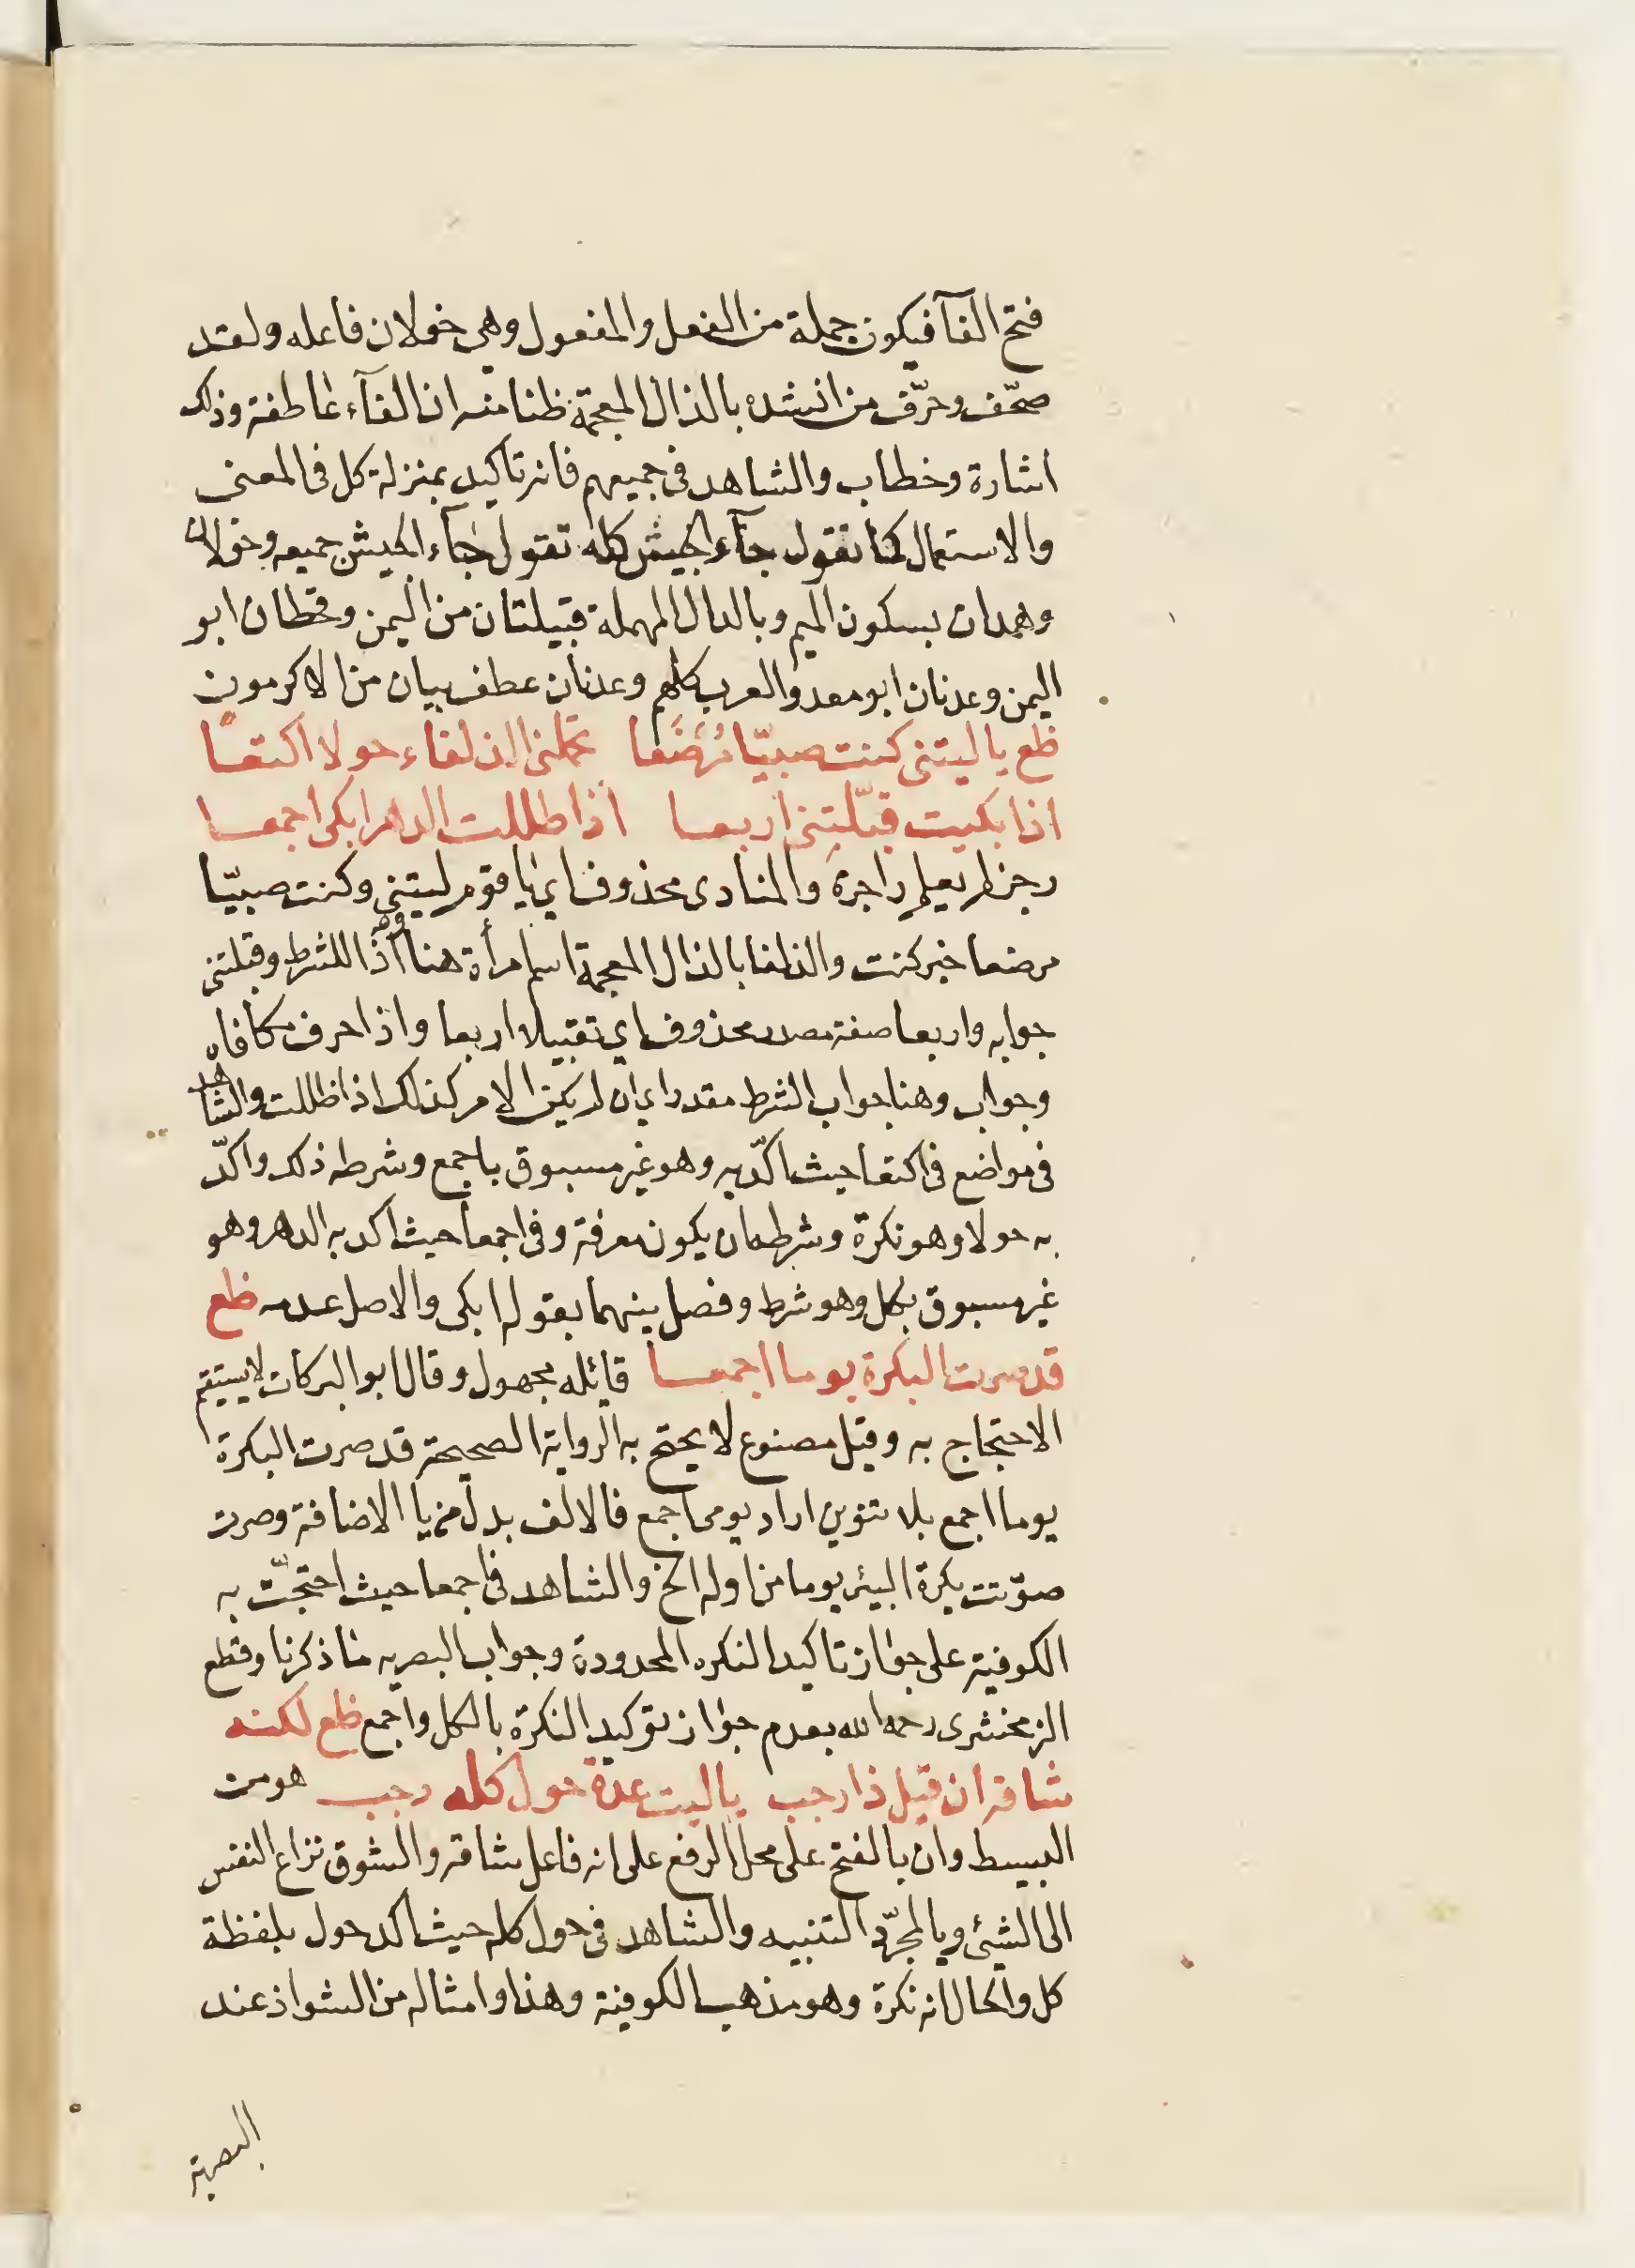 فتح الفآ فيكون جملة من الفعل والمفعول وهي خولان فاعله ولقد
صحّف وحرّف من انشده بالذال المعجمة ظنا منه ان الفآء عاطفة وذلك
اشارة وخطاب والشاهد في جميعهم فانه تاكيد بمنزلة كل في المعنى
والاستعمال كما تقول جآء الجيش كله تقول جآء الجيش جميعه وخولان
وهمدان بسكون الميم وبالدال المهملة قبيلتان من اليمن وقحطان ابو
اليمن وعدنان ابو معد والعرب كلهم وعدنان عطف بيان من الاكرمون
ظع يا ليتني كنت صبيّا مُرْضَعا تحملني الذلفاء حولا اكتعًا
اذا بكيت قبّلتني اربعا اذا ظللت الدهر ابكي اجمعا
رجز لم يعلم راجزه والمنادى محذوف اي يا قوم ليتني وكنت صبيّا
مرضعا خبر كنت والذلفا بالذال المعجمة اسم امرأة هنا واذا للشرط وقبلتني
جوابه واربعا صفة مصدر محذوف اي تقبيلا اربعا واذا حرف مكافاه
وجواب وهنا جواب الشرط مقدر اي ان لم يكن الامر كذلك اذا ظللت والشاهد
في مواضع في اكتعا حيث اكّد به وهو غير مسبوق باجمع وشرطه ذلك واكّد
به حولا وهو نكرة وشرطه ان يكون معرفة وفي اجمعا حيث اكد به الدهر وهو
غير مسبوق بكل وهو شرط وفصل بينهما بقوله ابكى والاصل عدمه ظع
قد صرت البكرة يوما اجمعا قائله مجهول وقال ابو البركات لا يستقيم
الاحتجاج به وقيل مصنوع لا يحتج به الرواية الصحيحة قد صرت البكرة
يوما اجمع بلا تنوين اراد يومى اجمع فالالف بدل من يا الاضافة وصرت
صوّتت بكرة البيئر يوما من اوله الخ والشاهد في اجمعا حيث احتجّت به
الكوفية على جواز تاكيد النكره المحدودة وجواب البصريه ما ذكرنا وقطع
الزمخشرى رحمه الله بعدم جواز توكيد النكرة بالكل واجمع ظع لكنه
شاقه ان قيل ذا رجب يا ليت عدة حول كله رجب هو من
البسيط وان بالفتح على محل الرفع على انه فاعل شاقه والشوق نزاع النفس
الى الشيئ ويا لمجرّد التنبيه والشاهد في حول كله حيث اكد حول بلفظة
كل والحال انه نكرة وهو مذهب الكوفية وهذا وامثاله من الشواذ عند
البصرية